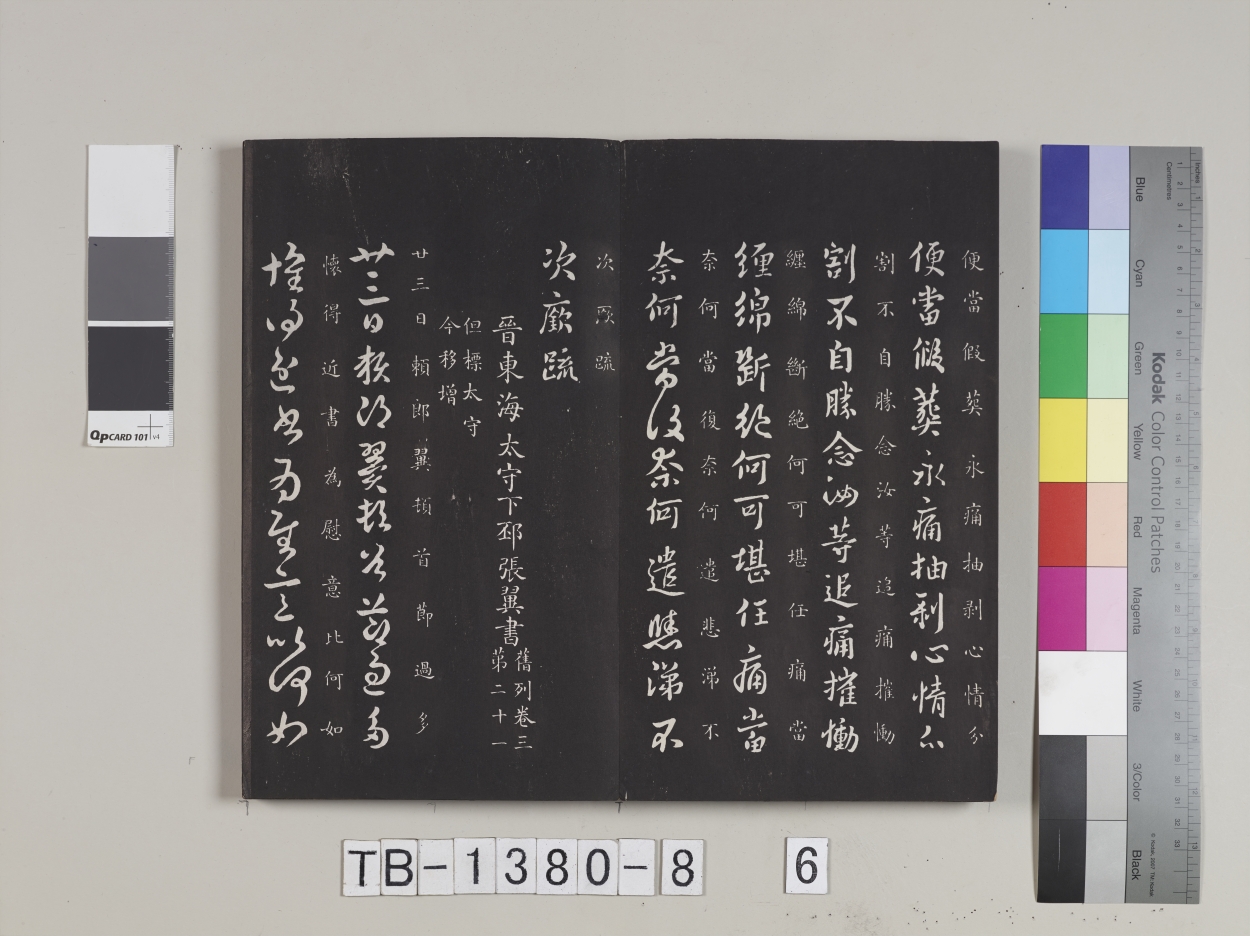 便當假葬永痛抽剥心情分
便當假葬永痛抽剥心情分
割不自勝念汝等追痛摧慟
割不自勝念汝等追痛摧慟
纏綿斷絕何可堪任痛當
纏綿斷絕何可堪任痛當
奈何當復奈何遣悲涕不
奈何當復奈何遣悲涕不
次
疏
次
疏
晉東海太守下邳張翼書
舊列卷三
第二十一
但標太守
今移增
廿三日頼郎翼頓首節過多
廿三日頼郎翼頓首節過多
懐得近書為慰意比何如
懐得近書為慰意比何如
QpCARD 101 v4
TB-1380-8 6
Kodak Color Control Patches
Blue
Cyan
Green
Yellow
Red
Magenta
White
3/Color
Black
Inches
Centimetres